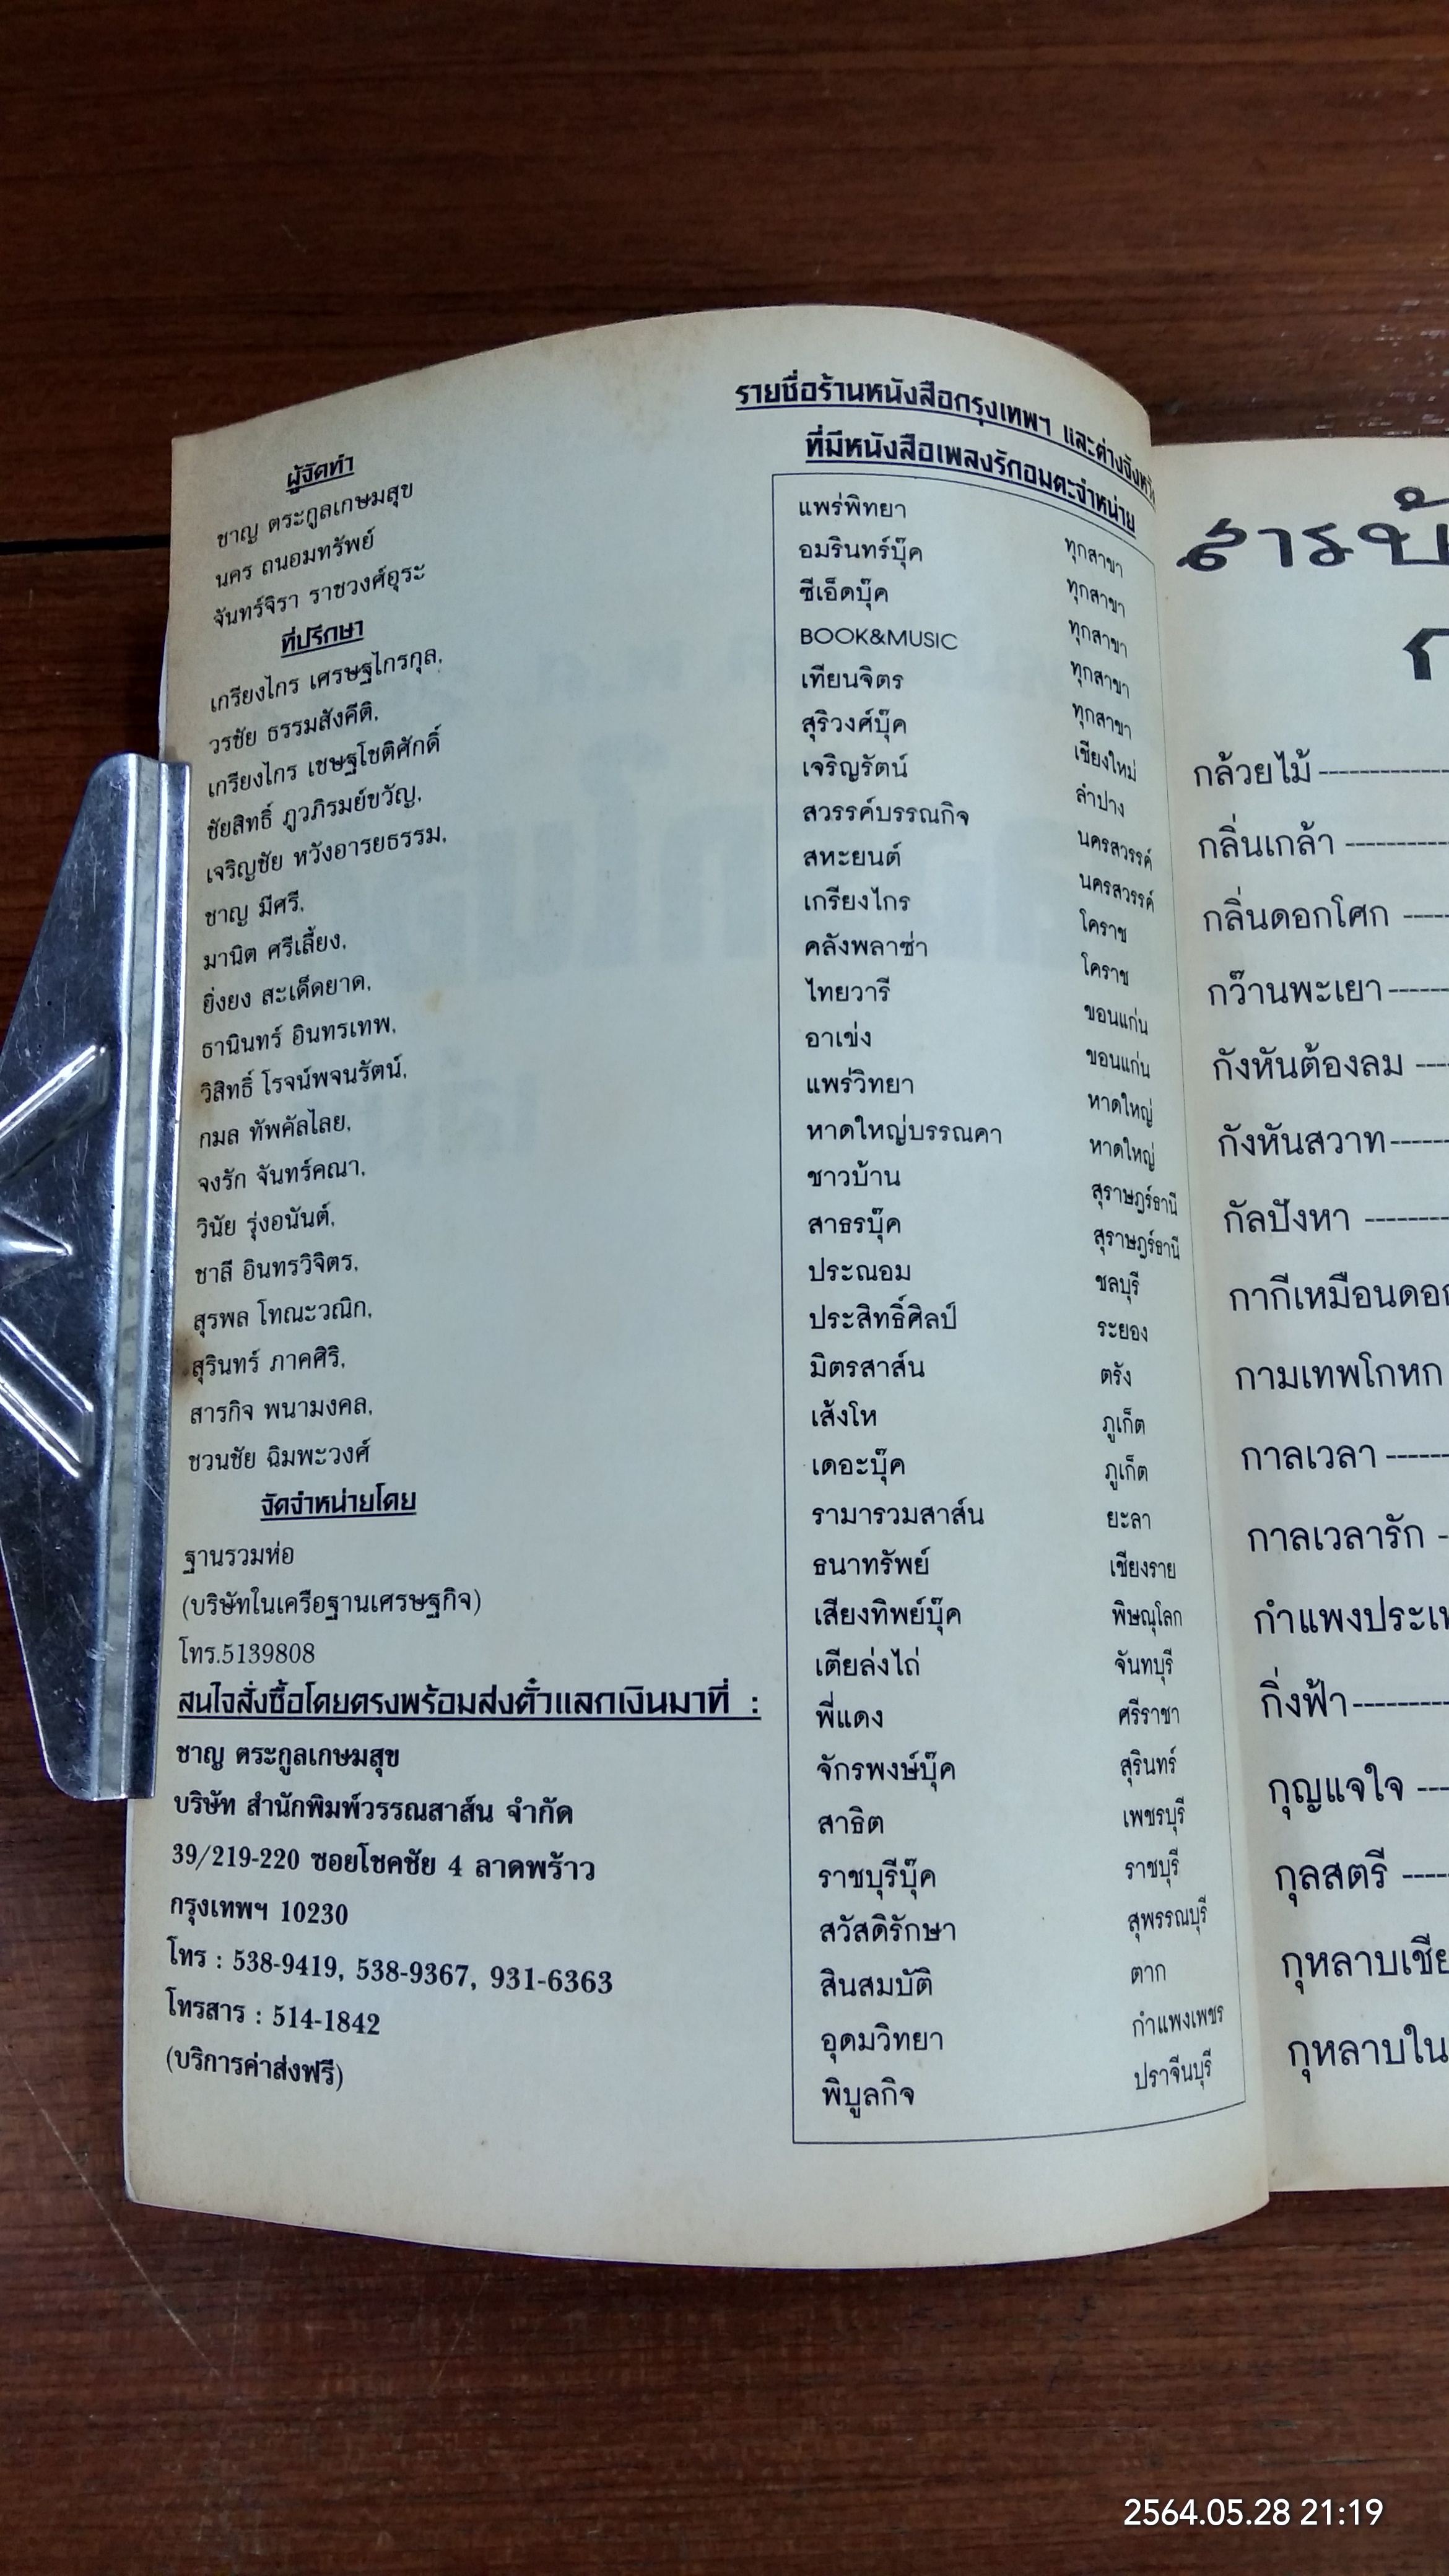 ผู้จัดทำ
ชาญ ตระกูลเกษมสุข
นคร ถนอมทรัพย์
จันทร์จิรา ราชวงศ์อุระ
ที่ปรึกษา
เกรียงไกร เศรษฐไกรกุล,
วรชัย ธรรมสังคีติ,
เกรียงไกร เชษฐโชติศักดิ์
ชัยสิทธิ์ ภูวภิรมย์ขวัญ,
เจริญชัย หวังอารยธรรม,
ชาญ มีศรี,
มานิต ศรีเลี้ยง,
ยิ่งยง สะเด็ดยาด,
ธานินทร์ อินทรเทพ,
วิสิทธิ์ โรจน์พจนรัตน์,
กมล ทัพคัลไลย,
จงรัก จันทร์คณา,
วินัย รุ่งอนันต์,
ชาลี อินทรวิจิตร,
สุรพล โทณะวณิก,
สุรินทร์ ภาคศิริ,
สารกิจ พนามงคล,
ชวนชัย ฉิมพะวงศ์
จัดจำหน่ายโดย
ฐานรวมห่อ
(บริษัทในเครือฐานเศรษฐกิจ)
โทร.5139808
สนใจสั่งซื้อโดยตรงพร้อมส่งตั๋วแลกเงินมาที่ :
ชาญ ตระกูลเกษมสุข
บริษัท สำนักพิมพ์วรรณสาส์น จำกัด
39/219-220 ซอยโชคชัย 4 ลาดพร้าว
กรุงเทพฯ 10230
โทร : 538-9419, 538-9367, 931-6363
โทรสาร : 514-1842
(บริการค่าส่งฟรี)
รายชื่อร้านหนังสือกรุงเทพฯ และต่างจังหวั
ที่มีหนังสือเพลงรักอมตะจำหน่าย
แพร่พิทยา ทุกสาขา
อมรินทร์บุ๊ค ทุกสาขา
ซีเอ็ดบุ๊ค ทุกสาขา
BOOK&MUSIC ทุกสาขา
เทียนจิตร ทุกสาขา
สุริวงศ์บุ๊ค เชียงใหม่
เจริญรัตน์ ลำปาง
สวรรค์บรรณกิจ นครสวรรค์
สหะยนต์ นครสวรรค์
เกรียงไกร โคราช
คลังพลาซ่า โคราช
ไทยวารี ขอนแก่น
อาเข่ง ขอนแก่น
แพร่วิทยา หาดใหญ่
หาดใหญ่บรรณคา หาดใหญ่
ชาวบ้าน สุราษฎร์ธานี
สาธรบุ๊ค สุราษฎร์ธานี
ประณอม ชลบุรี
ประสิทธิ์ศิลป์ ระยอง
มิตรสาส์น ตรัง
เส้งโห ภูเก็ต
เดอะบุ๊ค ภูเก็ต
รามารวมสาส์น ยะลา
ธนาทรัพย์ เชียงราย
เสียงทิพย์บุ๊ค พิษณุโลก
เตียล่งไถ่ จันทบุรี
พี่แดง ศรีราชา
จักรพงษ์บุ๊ค สุรินทร์
สาธิต เพชรบุรี
ราชบุรีบุ๊ค ราชบุรี
สวัสดิรักษา สุพรรณบุรี
สินสมบัติ ตาก
อุดมวิทยา กำแพงเพชร
พิบูลกิจ ปราจีนบุรี
สารบั
ก
กล้วยไม้ ----------
กลิ่นเกล้า --------
กลิ่นดอกโศก ----
กว๊านพะเยา -----
กังหันต้องลม ---
กังหันสวาท -----
กัลปังหา -------
กากีเหมือนดอก
กามเทพโกหก
กาลเวลา -----
กาลเวลารัก -
กำแพงประเพ
กิ่งฟ้า --------
กุญแจใจ ---
กุลสตรี ----
กุหลาบเชีย
กุหลาบใน
2564.05.28 21:19